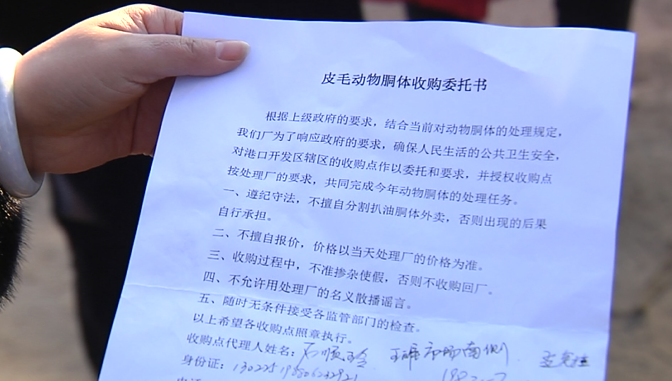 皮毛动物胴体收购委托书
根据上级政府的要求，结合当前对动物胴体的处理规定，
我们厂为了响应政府的要求，确保人民生活的公共卫生安全，
对港口开发区辖区的收购点作以委托和要求，并授权收购点
按处理厂的要求，共同完成今年动物胴体的处理任务。
一、遵纪守法，不擅自分割扒油胴体外卖，否则出现的后果
自行承担。
二、不擅自报价，价格以当天处理厂的价格为准。
三、收购过程中，不准掺杂使假，否则不收购回厂。
四、不允许用处理厂的名义散播谣言。
五、随时无条件接受各监管部门的检查。
以上希望各收购点照章执行。
收购点代理人姓名：
身份证：